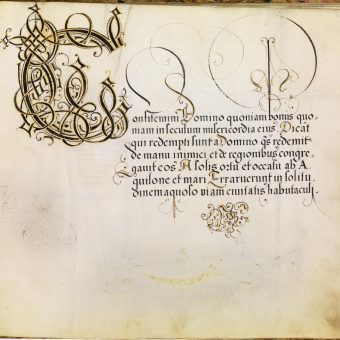 Confitemini Domino quoniam bonus quo-
niam in seculum misericordia eius. Dicāt
qui redempti sunt a Domino q̄s redemit
de manu inimici et de regionibus congre,
gauit eos A solis ortu et occasu ab A
quilone et mari Errauerunt in solitu
dine in aquoso viam ciuitatis habitaculi